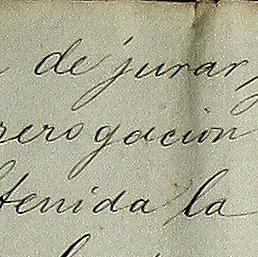 de jurar,
rerogacion
tenida la